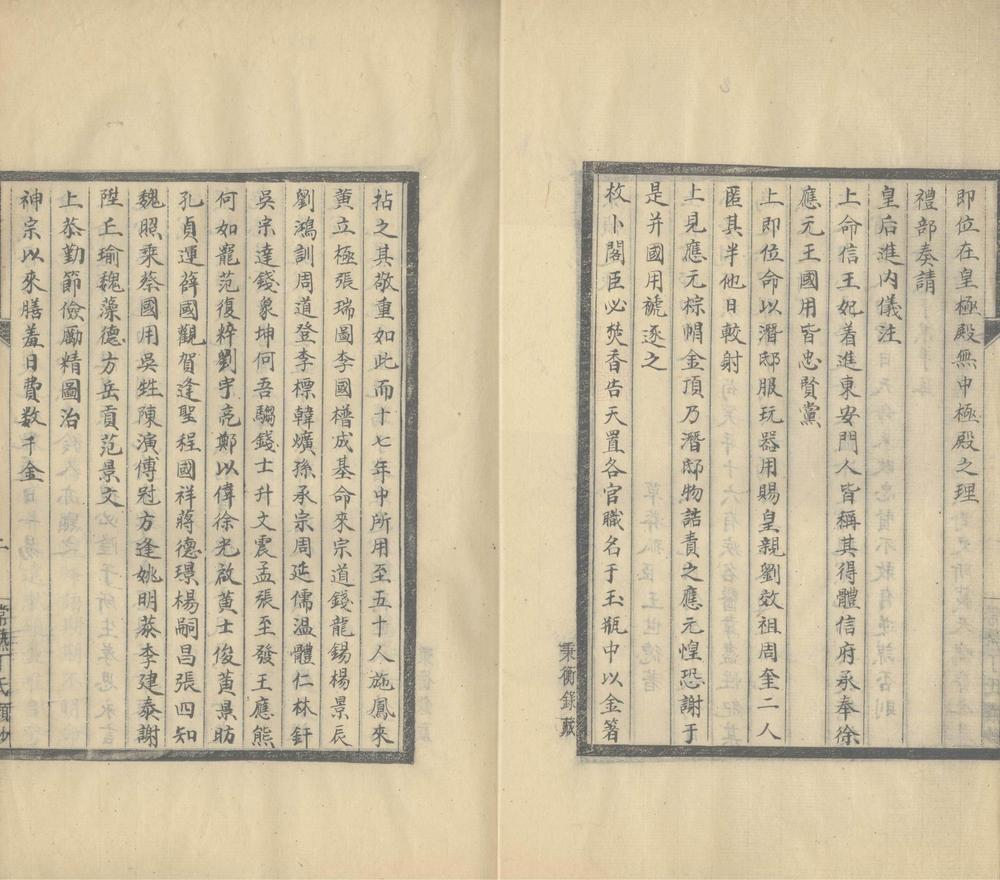 即位在皇極殿無中極殿之理
禮部奏請
皇后進內儀注
上命信王妃着進東安門人皆稱其得體信府承奉徐
應元王國用皆忠賢黨
上即位命以潛邸服玩器用賜皇親劉效祖周奎二人
匿其半他日較射
上見應元棕帽金頂乃潛邸物詰責之應元惶恐謝于
是并國用褫逐之
枚卜閣臣必焚香告天置各官職名于玉瓶中以金箸
秉衡錄藏
拈之其敬重如此而十七年中所用至五十人施鳳來
黃立極張瑞圖李國𣚴成基命來宗道錢龍錫楊景辰
劉鴻訓周道登李標韓爌孫承宗周延儒溫體仁林釬
吳宗達錢象坤何吾騶錢士升文震孟張至發王應熊
何如寵范復粹劉宇亮鄭以偉徐光啟黃士俊黃景昉
孔貞運薛國觀賀逢聖程國祥蔣德璟楊嗣昌張四知
魏照乘蔡國用吳甡陳演傅冠方逢姚明恭李建泰謝
陞丘瑜魏藻德方岳貢范景文
上恭勤節儉勵精圖治
神宗以來膳羞日費數千金
二
常熟丁氏